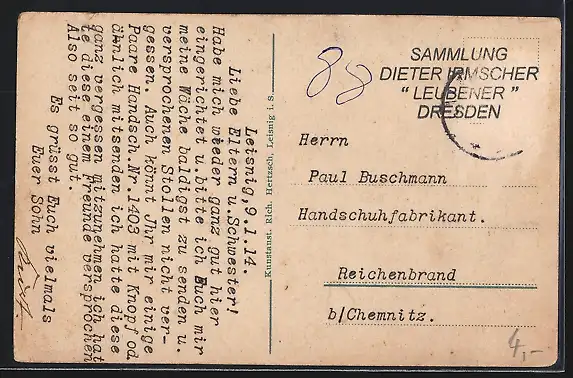 Leisnig, 9.1.14.
Liebe Eltern u. Schwester!
Habe mich wieder ganz gut hier
eingerichtet u. bitte ich Euch mir
meine Wäche baldigst zu senden u.
versprochenen Stollen nicht ver-
gessen. Auch könnt Jhr mir einige
Paare Handsch. Nr. 1403 mit Knopf od
ähnlich mitsenden ich hatte diese
ganz vergessen mitzunehmen ich hat
te diese einem Freunde versprochen
Also seit so gut.
Es grüsst Euch vielmals
Euer Sohn
Kunstanst. Rich. Hertzsch, Leisnig i. S.
88
SAMMLUNG
DIETER IRMSCHER
" LEUBENER "
DRESDEN
Herrn
Paul Buschmann
Handschuhfabrikant.
Reichenbrand
b/Chemnitz.
4,-